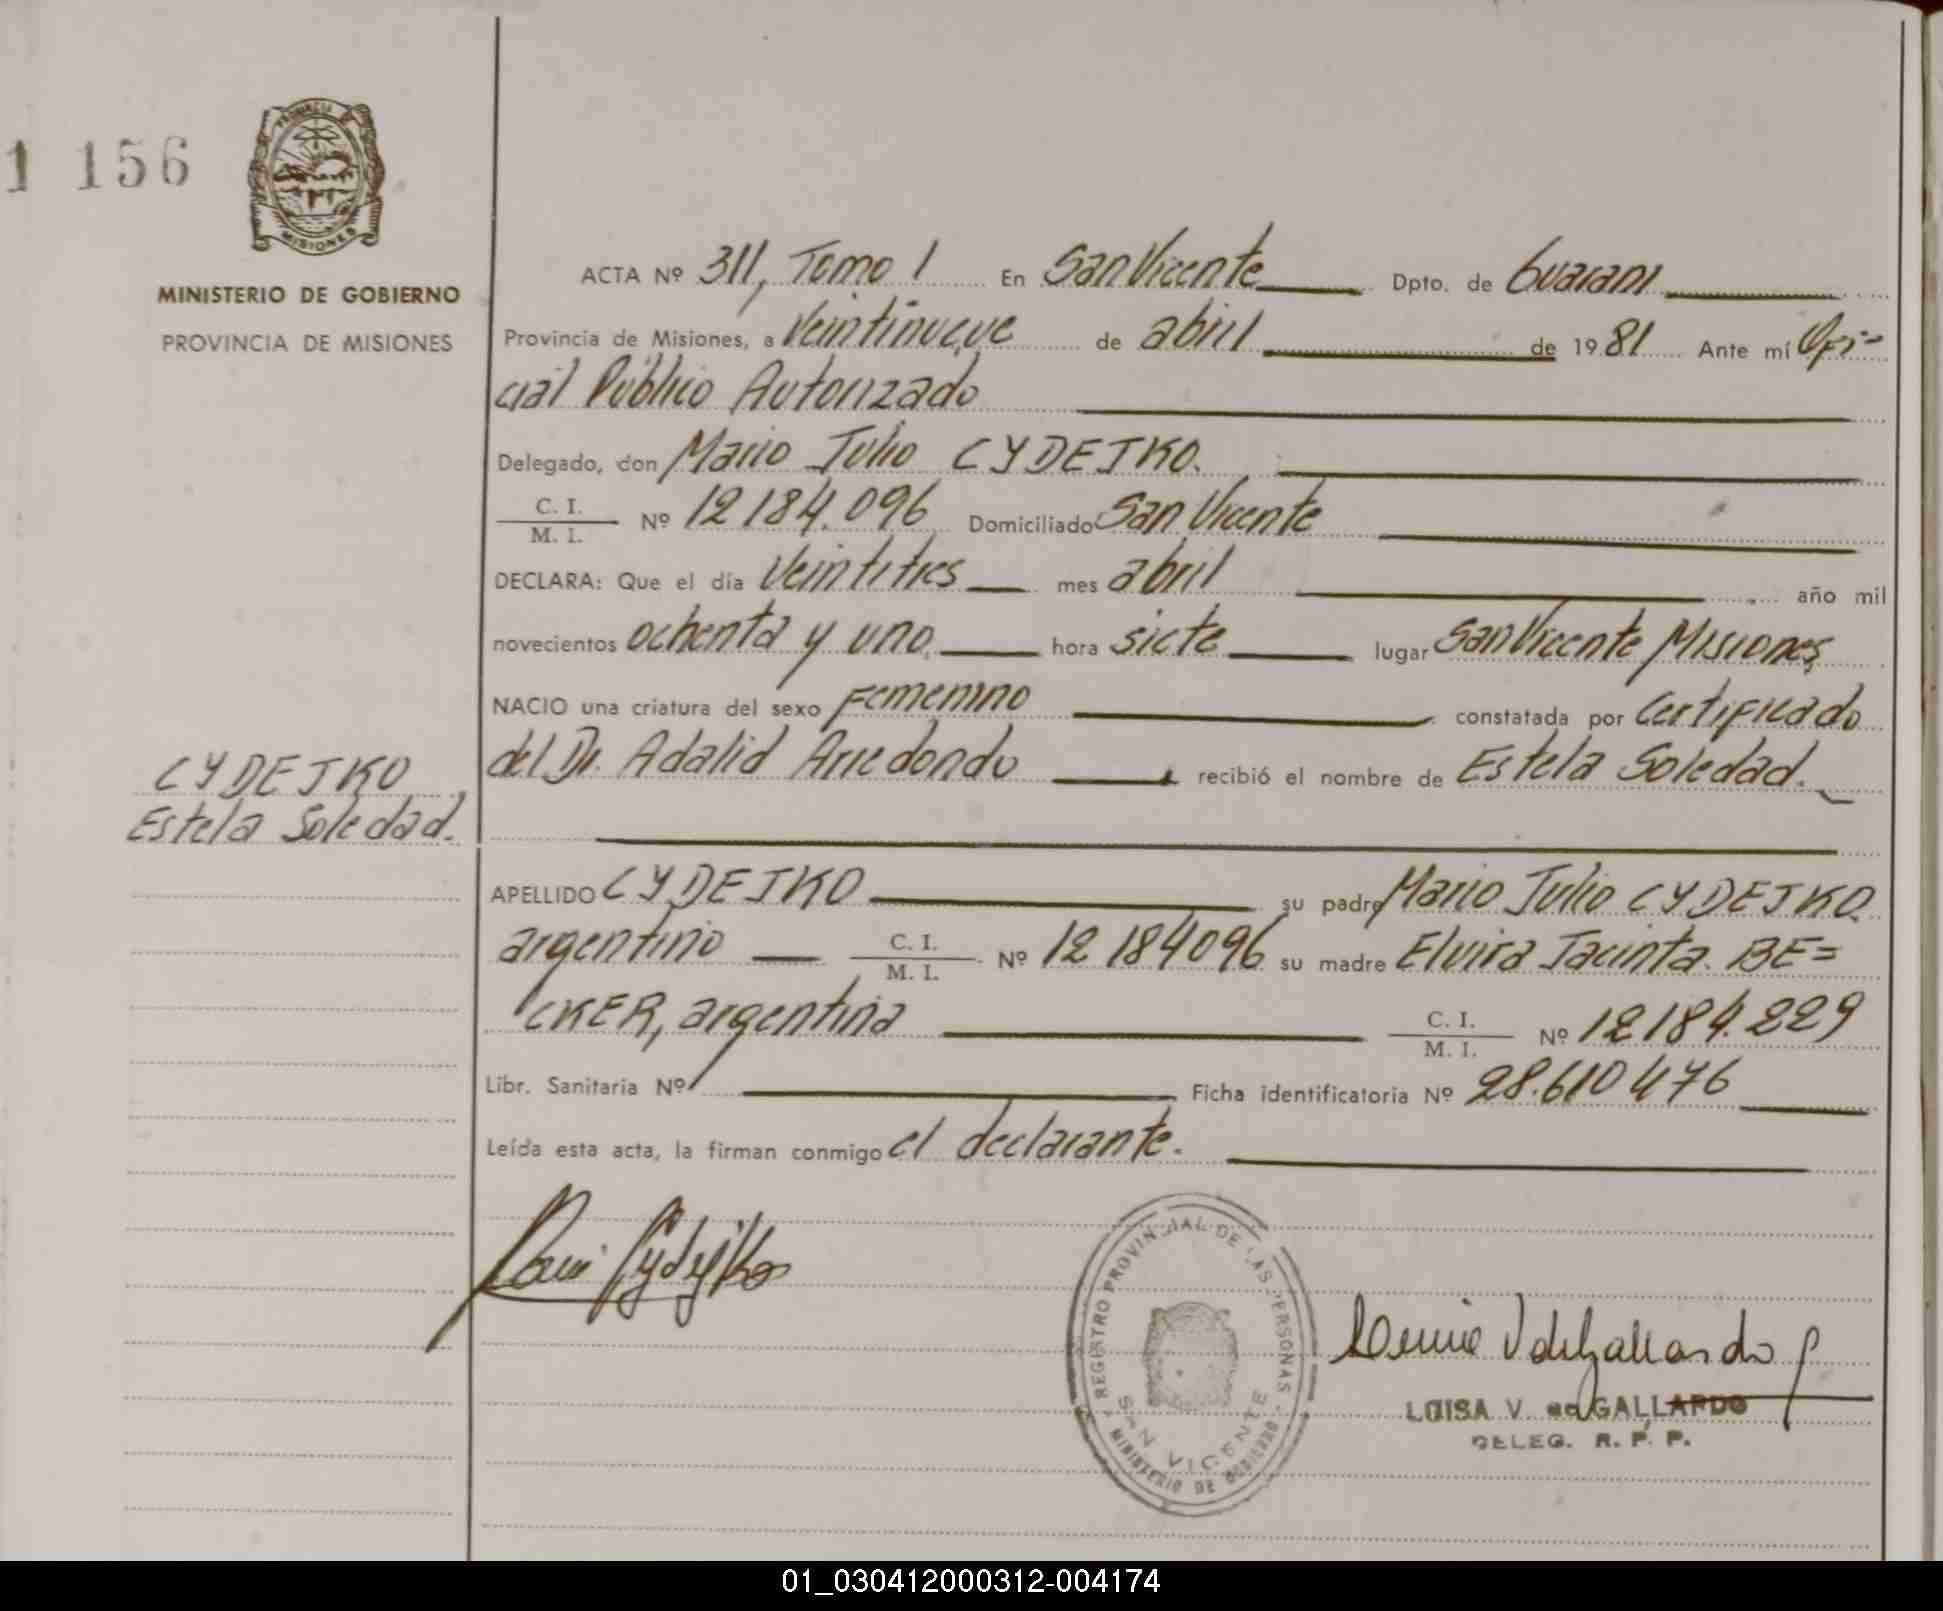 1 156
PROVINCIA
MISIONES
MINISTERIO DE GOBIERNO
PROVINCIA DE MISIONES
ACTA Nº 311, Tomo 1 En San Vicente Dpto. de Guarani
Provincia de Misiones, a Veintinueve de abril de 1981 Ante mí Ofi-
cial Público Autorizado
Delegado, don Mario Julio CYDEJKO.
C. I.
M. I. Nº 12184.096 Domiciliado San Vicente
DECLARA: Que el día Veintitres mes abril año mil
novecientos ochenta y uno hora siete lugar San Vicente Misiones
NACIO una criatura del sexo Femenino constatada por Certificado
del Dr. Adalid Arredondo recibió el nombre de Estela Soledad.
CYDEJKO
Estela Soledad.
APELLIDO CYDEJKO su padre Mario Julio CYDEJKO.
argentino C. I.
M. I. Nº 12184096 su madre Elvira Jacinta BE=
CKER, argentina C. I.
M. I. Nº 12184.229
Libr. Sanitaria Nº Ficha identificatoria Nº 28.610476
Leída esta acta, la firman conmigo el declarante.
REGISTRO PROVINCIAL DE LAS PERSONAS
SAN VICENTE
MINISTERIO DE GOBIERNO
LUISA V. de GALLARDO
DELEG. R. P. P.
01_030412000312-004174